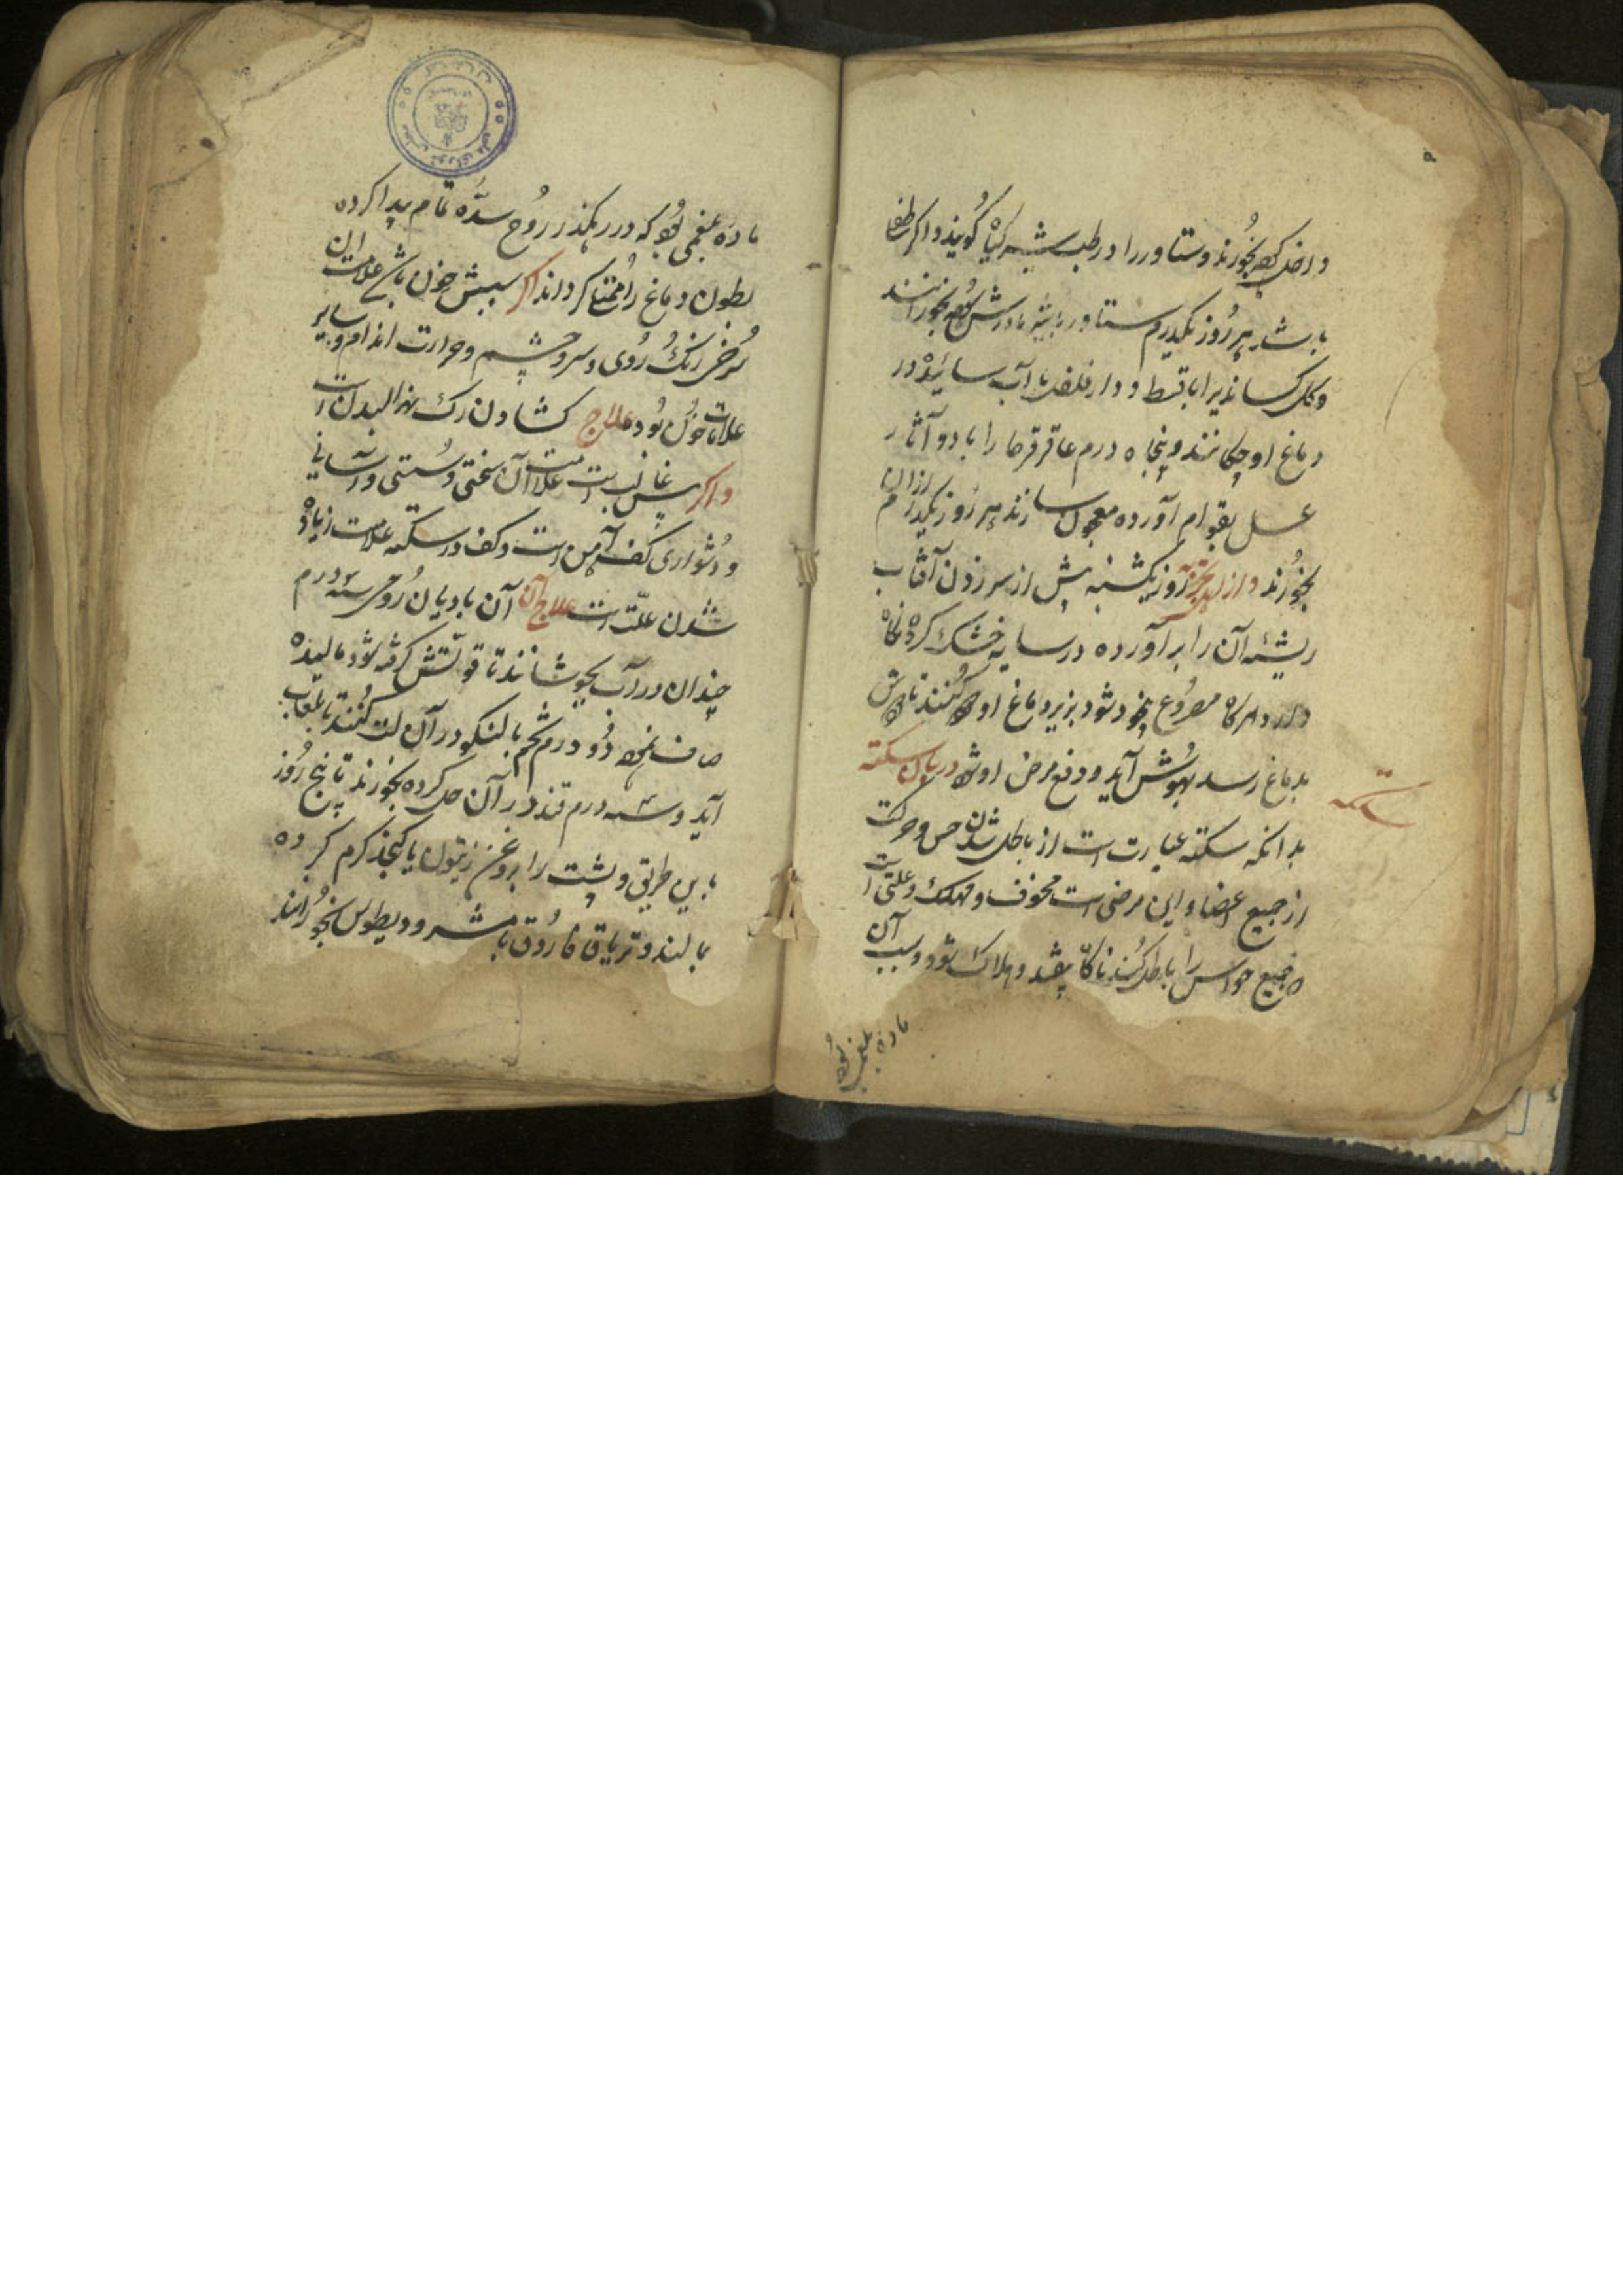 داخل کرده بخورند و ستاور را در طب شیر گیاه گویند و اگر طفل
باشد هر روز یکدرم ستاور بشیر مادرش بخورانند
و کل کساندیرا با قسط و دارفلفل با آب سائیده در
دماغ او چکانند و پنجاه درم عاقرقرحا را با دو آثار
عسل بقوام آورده معجون سازند هر روز یکدرم ازان
بخورند و از روز یکشنبه پیش از سر زدن آفتاب
ریشه آن را برآورده در سایه خشک کرده نگاه
دارد هرگاه مصروع بیخود شود بزیر دماغ او کنند تا
بدماغ رسد بهوش آید و دفع مرض او شود در بیان سکته
سکته
بدانکه سکته عبارت است از باطل شدن حس و حرکت
از جمیع اعضا و این مرضی است مخوف و مهلک و علتی است
که جمیع حواس را باطل کند ناگاه بیفتد و هلاک شود و سبب آن
ماده بلغمی بود
ماده بلغمی بود که در رهگذر روح سده تمام پیدا کرده
بطون دماغ را ممتلی گرداند اگر سببش خون باشد علامت این
سرخی رنگ روی و سر و چشم و حرارت اندام و سایر
علامات خون بود علاج کشادن رگ نهر البدن است
و اگر غالب است علامت آن سختی و سستی و آسانی
و دشواری کف آمدن است و کف در سکته علامت زیاده
شدن علت است علاج آن آن بادیان رومی سه درم
چندان در آب بجوشانند تا قوتش گرفته شود مالیده
صاف نموده دو درم تخم بالنگو در آن لت کنند تا بلعاب
آید و سه درم قند در آن حل کرده بخورند تا پنج روز
باین طریق و پشت را بروغن زیتون یا کنجد گرم کرده
بمالند و تریاق فاروق با مشرودیطوس بخورانند